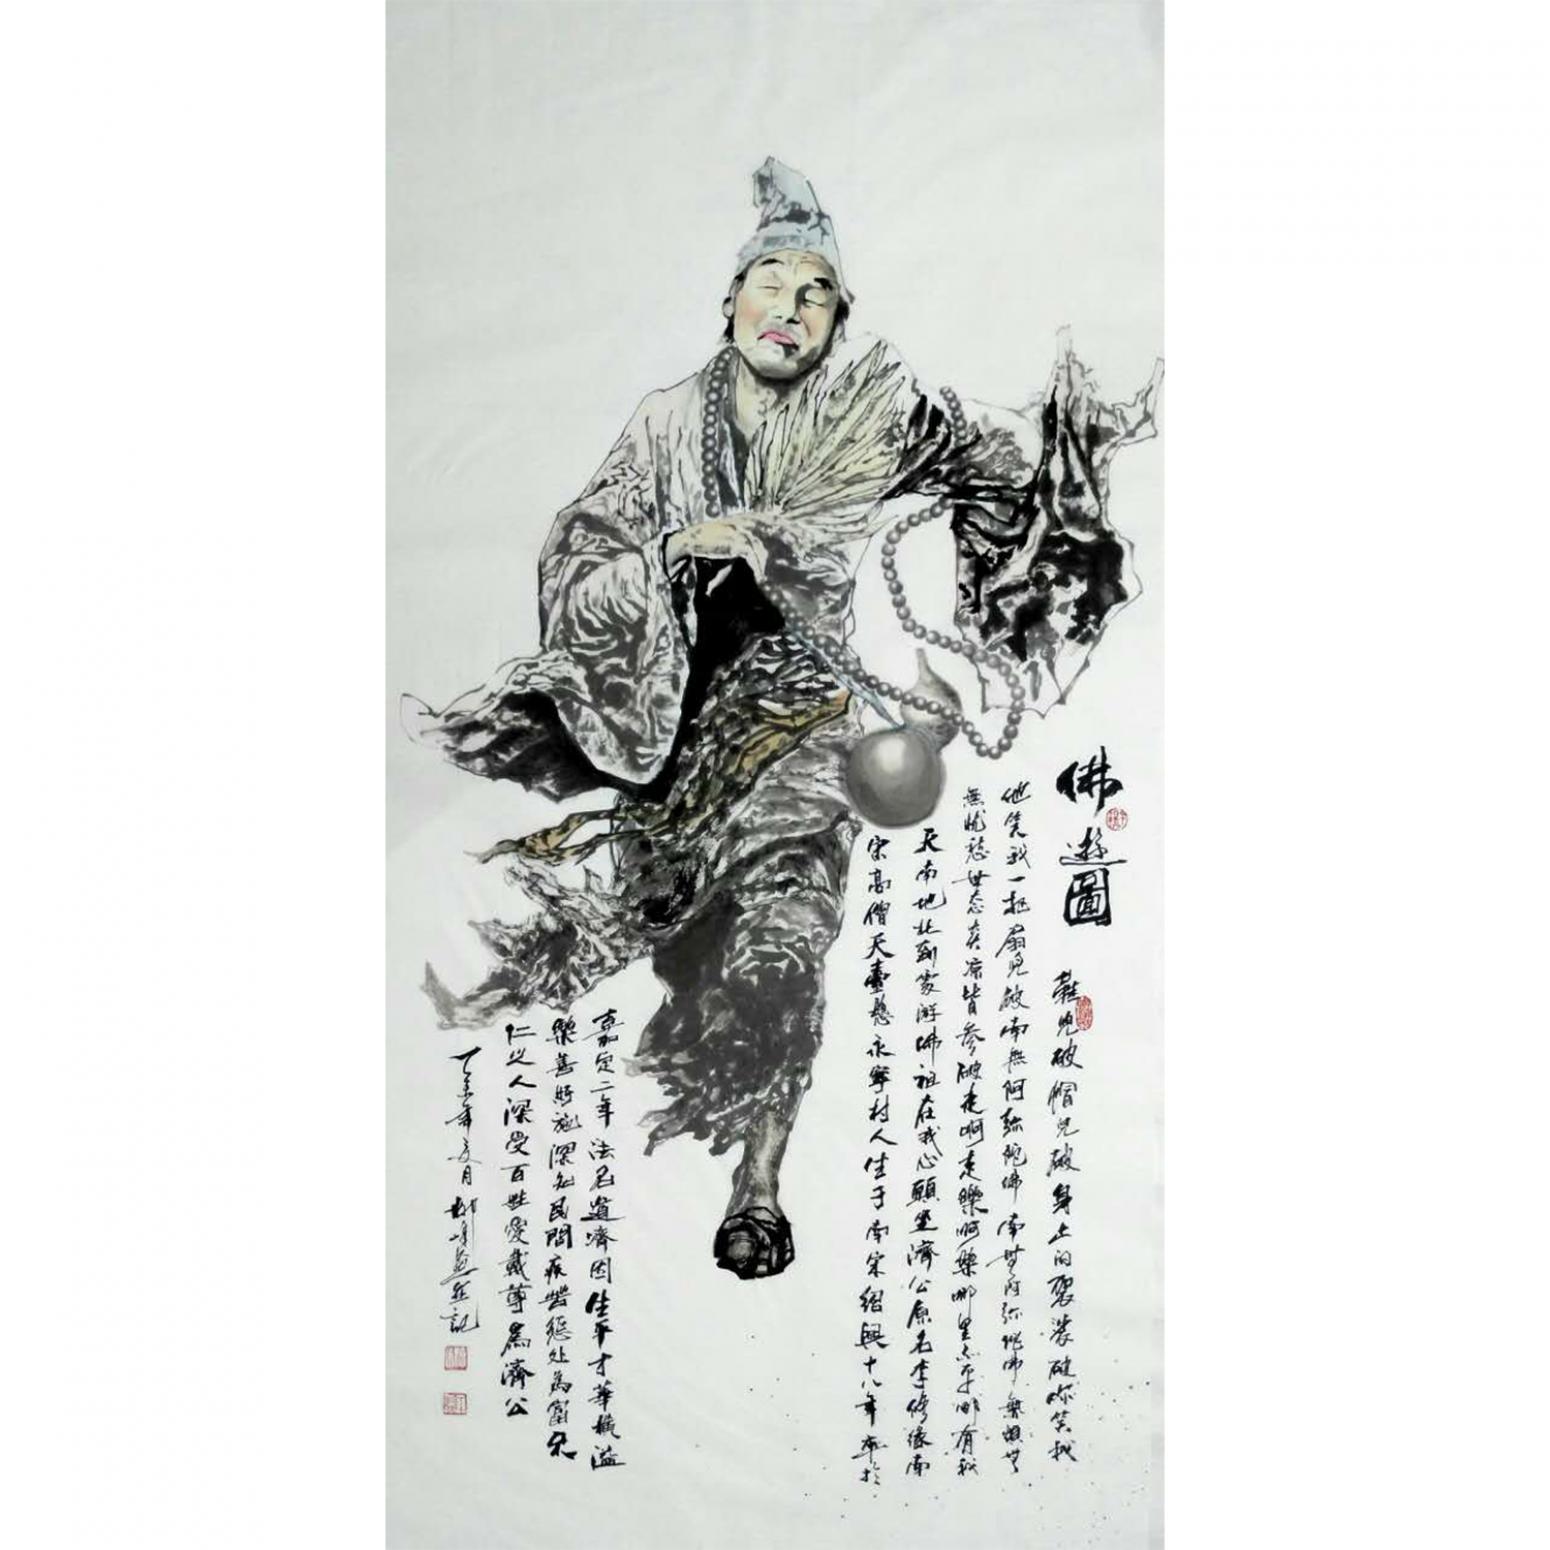 佛遊圖
鞋兒破帽兒破身上的袈裟破你笑我
他笑我一把扇兒破南無阿彌陀佛南無阿彌陀佛無煩無
無忧愁世态炎凉皆參破走啊走樂啊樂哪里不平哪有我
天南地北到家游佛祖在我心頭坐濟公原名李修缘南
宋高僧天臺縣永寧村人生于南宋紹興十八年卒於
嘉定二年法名道濟因生平才華橫溢
樂善好施深知民間疾苦惩处為富不
仁之人深受百姓愛戴尊為濟公
年夏月
記